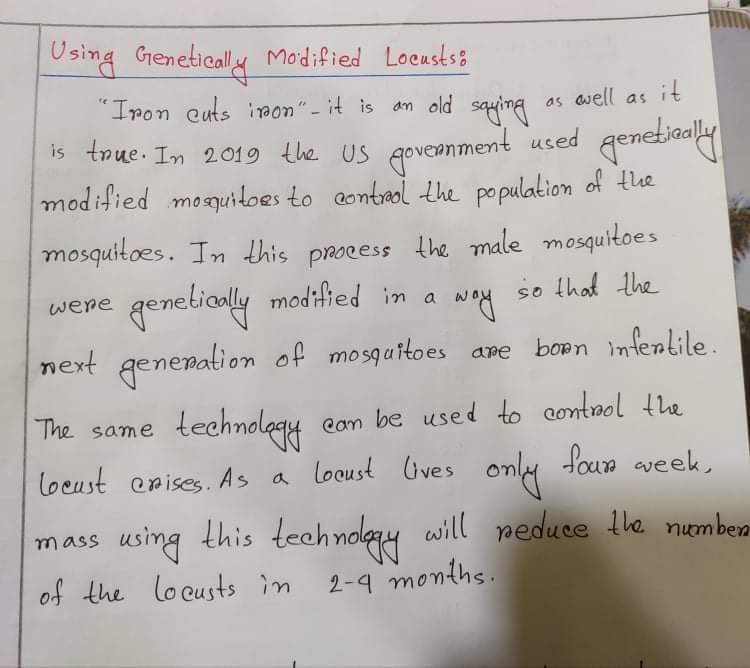 Using Genetically Modified Locusts:
"Iron cuts iron" - it is an old saying as well as it
is true. In 2019 the US government used genetically
modified mosquitoes to control the population of the
mosquitoes. In this process the male mosquitoes
were genetically modified in a way so that the
next generation of mosquitoes are born infertile.
The same technology can be used to control the
locust crises. As a locust lives only four week,
mass using this technology will reduce the number
of the locusts in 2-4 months.